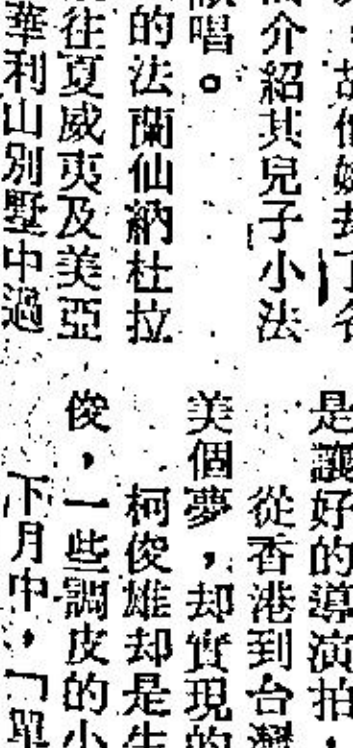 故他去了
介紹其兒子小法
唱。
的法蘭仙納杜拉
往夏威夷及美亞
華利山別墅中過
是讓好的導演拍，
從香港到台灣
美個夢，却實現的
柯俊雄却是生
俊，一些調皮的小
下月中，「單